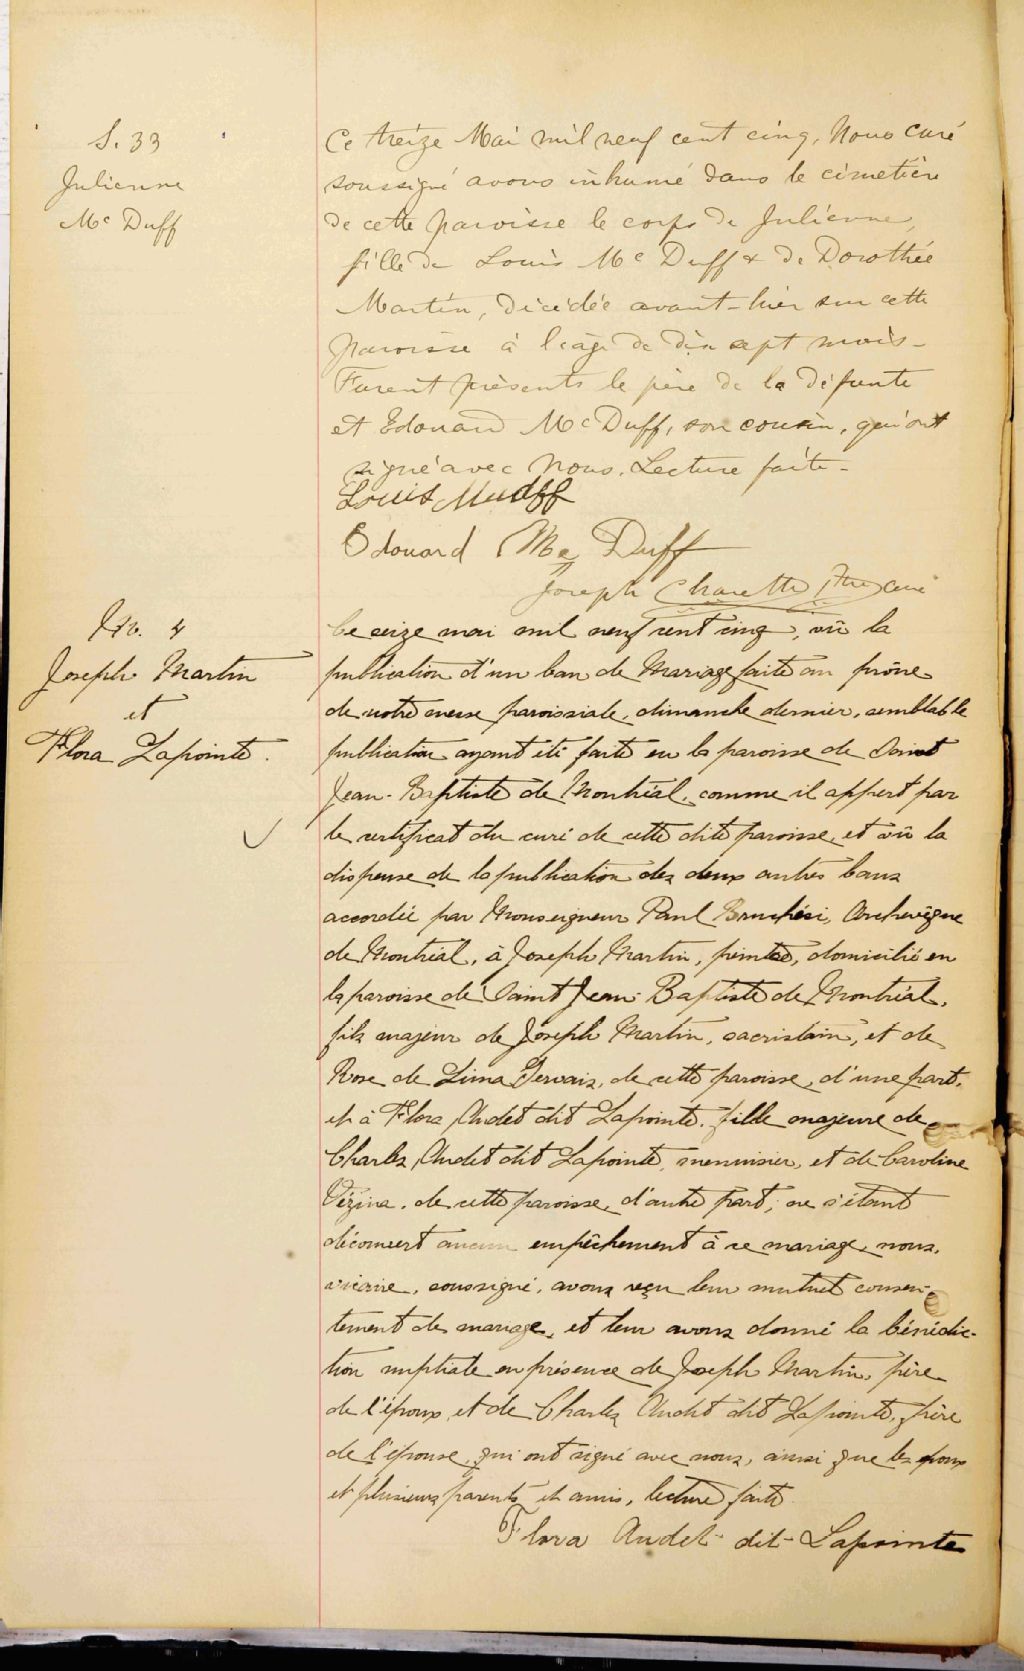 S. 33
Julienne
Mc Duff
Ce treize Mai mil neuf cent cinq, Nous curé
soussigné avons inhumé dans le cimetière
de cette paroisse le corps de Julienne,
fille de Louis Mc Duff & de Dorothée
Martin, décédée avant-hier sur cette
paroisse à l'âge de dix sept mois-
Furent présents le père de la défunte
et Edouard McDuff, son cousin, qui ont
signé avec Nous. Lecture faite-
Louis Mcduff
Edouard Mc Duff
Joseph Charette Ptre curé
M. 4
Joseph Martin
et
Flora Lapointe.
Ce seize mai mil neuf cent cinq, vû la
publication d'un ban de Mariage faite au prône
de notre messe paroissiale, dimanche dernier, semblable
publication ayant été faite en la paroisse de Saint
Jean-Baptiste de Montréal, comme il appert par
le certificat du curé de cette dite paroisse, et vû la
dispense de la publication des deux autres bans
accordée par Monseigneur Paul Bruchési, Archevêque
de Montréal, à Joseph Martin, peintre, domicilié en
la paroisse de Saint Jean-Baptiste de Montréal,
fils majeur de Joseph Martin, sacristain, et de
Rose de Lima Gervais, de cette paroisse, d'une part,
et à Flora Audet dit Lapointe, fille majeure de
Charles Audet dit Lapointe, menuisier, et de Caroline
Vézina, de cette paroisse, d'autre part; ne s'étant
découvert aucun empêchement à ce mariage, nous,
vicaire, soussigné, avons reçu leur mutuel consen-
tement de mariage, et leur avons donné la bénédic-
tion nuptiale en présence de Joseph Martin, père
de l'époux, et de Charles Audet dit Lapointe, père
de l'épouse, qui ont signé avec nous, ainsi que les époux
et plusieurs parents et amis, lecture faite.
Flora Audet-dit-Lapointe